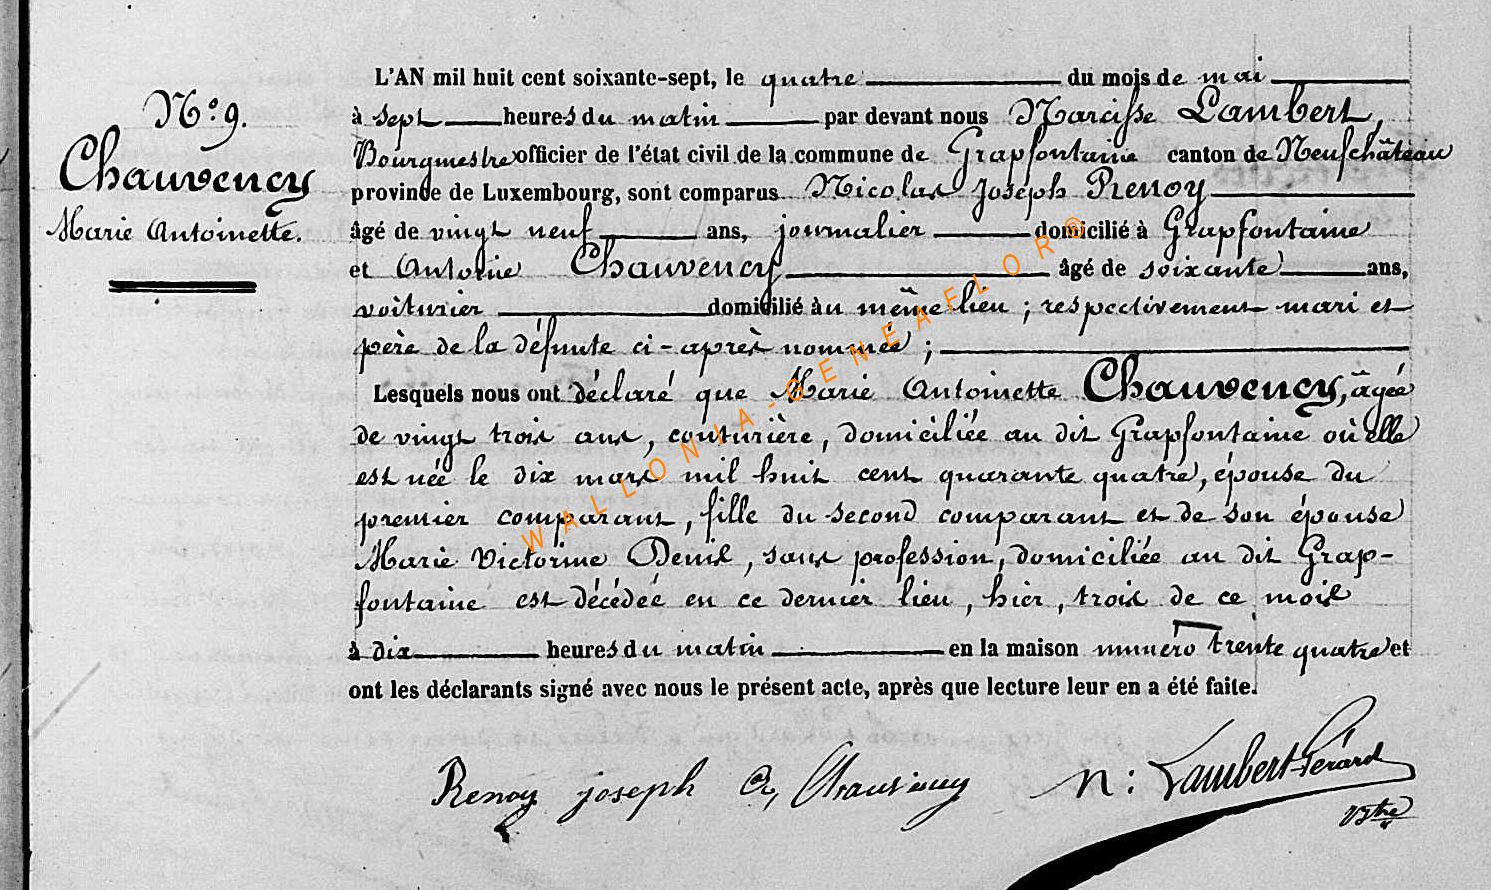 N.° 9.
Chauvency
Marie Antoinette.
L'AN mil huit cent soixante-sept, le quatre du mois de mai
à sept heures du matin par devant nous Narcisse Lambert,
Bourgmestre officier de l'état civil de la commune de Grapfontaine canton de Neufchâteau
province de Luxembourg, sont comparus Nicolas Joseph Renoy
âgé de vingt neuf ans, journalier domicilié à Grapfontaine
et Antoine Chauvency âgé de soixante ans,
voiturier domicilié au même lieu ; respectivement mari et
père de la défunte ci-après nommée ;
Lesquels nous ont déclaré que Marie Antoinette Chauvency, âgée
de vingt trois ans, couturière, domiciliée au dit Grapfontaine où elle
est née le dix mars mil huit cent quarante quatre, épouse du
premier comparant, fille du second comparant et de son épouse
Marie Victorine Denis, sans profession, domiciliée au dit Grap-
fontaine est décédée en ce dernier lieu, hier, trois de ce mois
à dix heures du matin en la maison numéro trente quatre et
ont les déclarants signé avec nous le présent acte, après que lecture leur en a été faite.
Renoy joseph A, Chauvency N : Lambert-Pérard
WALLONIA-GENEAFLOR®